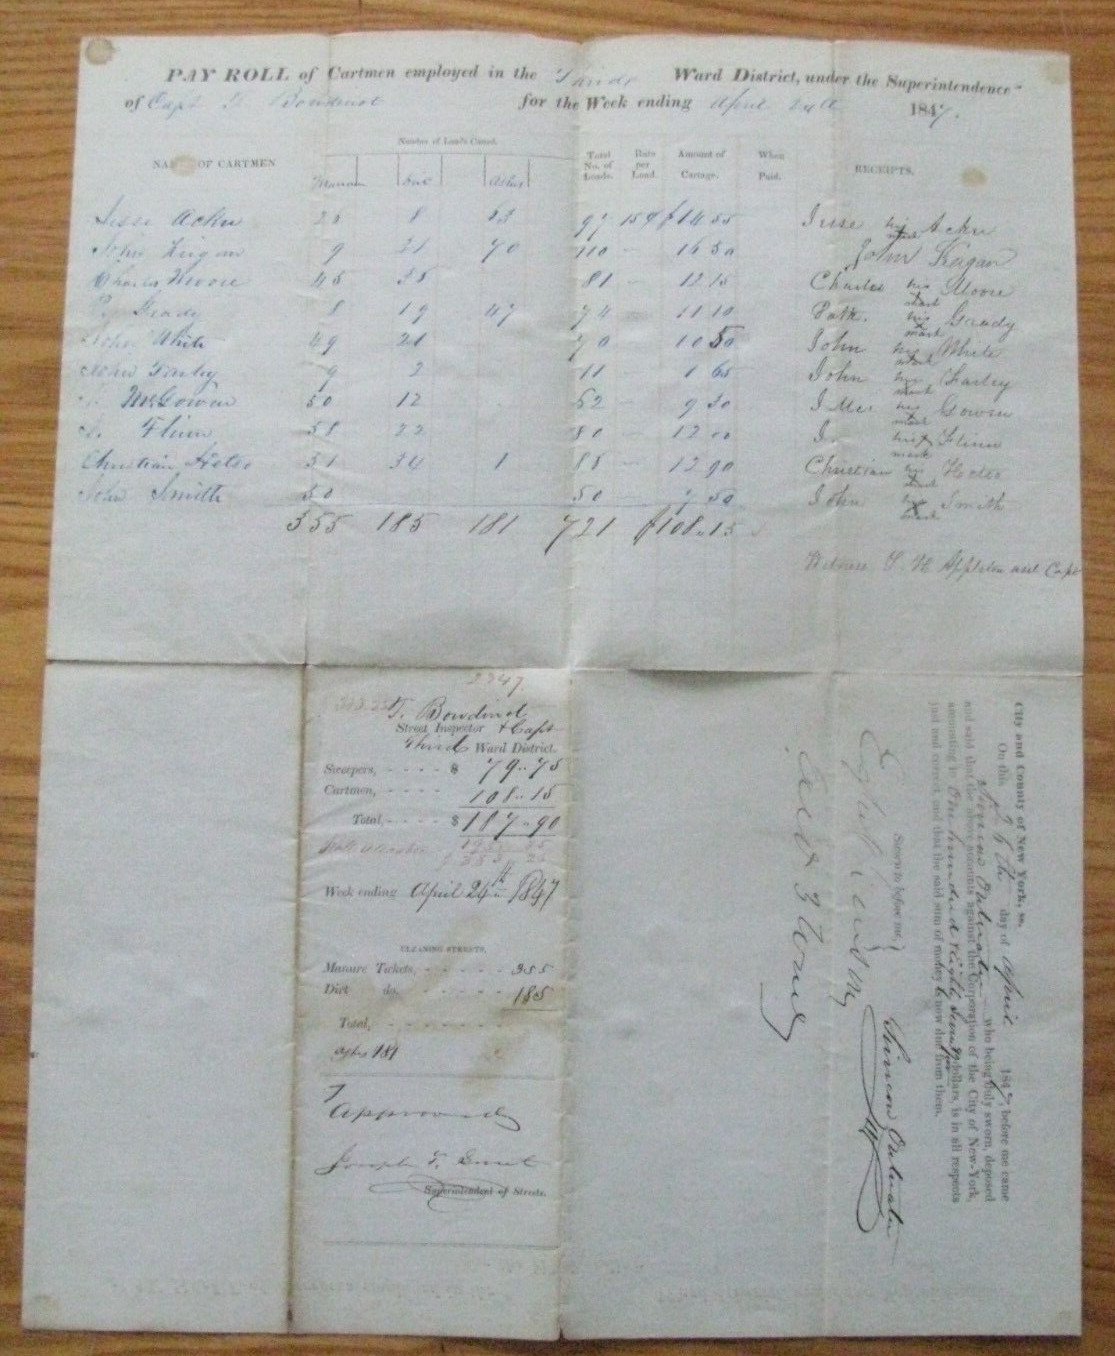 PAY ROLL of Cartmen employed in the Third Ward District, under the Superintendence
of Capt T. Boudinot for the Week ending April 24th 1847.
NAME OF CARTMEN Number of Loads Carted. Total No. of Loads. Rate per Load. Amount of Cartage. When Paid. RECEIPTS.
Manure Dirt Ashes
Jesse Acker 26 8 63 97 15 ¢ $14 55 Jesse his x mark Acker
John Keegan 9 31 70 110 - 16 50 John Keagan
Charles Moore 45 36 81 - 12 15 Charles his x mark Moore
P. Gready 8 19 47 74 - 11 10 Patk. his x mark Gready
John White 49 21 70 - 10 50 John his x mark White
John Farley 9 2 11 - 1 65 John his x mark Farley
J. McGowen 50 12 62 - 9 30 J Mc his x mark Gowen
J. Flinn 58 22 80 - 12 00 J. his x mark Flinn
Christian 51 34 1 86 - 12 90 Christian his x mark
John Smith 50 50 - 7 50 John his x mark Smith
355 185 181 721 $108.15
Witness T. H. Appleton and Capt
2347.
T. Boudinot
Street Inspector & Capt
Third Ward District.
Sweepers, - - - - $ 79..75
Cartmen, - - - - 108..15
Total, - - - - $ 187..90
Week ending April 24th 1847
CLEANING STREETS.
Manure Tickets, - - - - - 355
Dirt do. - - - - - 185
Total, - - - - - - -
Ashes 181
Approved
Joseph T. Sweet
Superintendent of Streets.
City and County of New York, ss.
On this 26th day of April 1847, before me came
Simeon who being duly sworn, deposed
and said that the above accounts against the Corporation of the City of New-York,
amounting to One hundred & Eighty Seven dollars, is in all respects
just and correct, and that the said sum of money is now due from them.
Sworn to before me,
Simeon